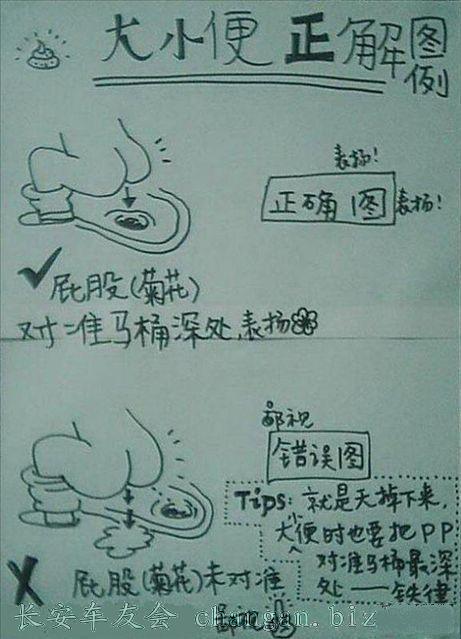 大小便正解图例
表扬!
正确图
表扬!
屁股(菊花)
对准马桶深处,表扬
鄙视
错误图
Tips: 就是天掉下来,
大便时也要把PP
对准马桶最深
处——铁律
屁股(菊花)未对准
鄙视
长安车友会 changan.biz